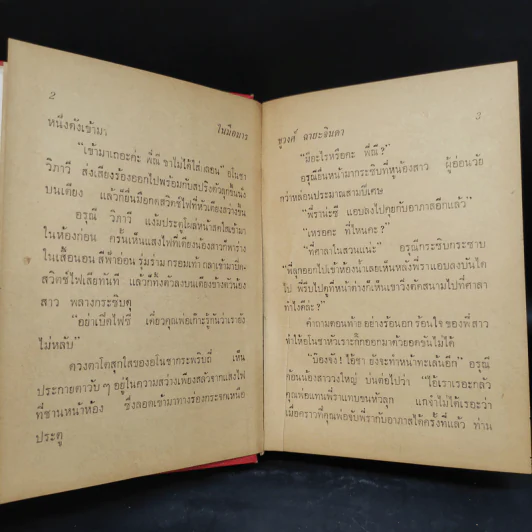 2 ไนมืดมาร
หนึ่งดังเข้ามา
"เข้ามาเถอะค่ะ พี่ณี ชาไม่ได้ใส่กลอน" อโนชา
วิภาวี ส่งเสียงร้องออกไปพร้อมกับสปริงตัวลุกขึ้นนั่ง
บนเตียง แล้วก็ยื่นมือกดสวิตช์ไฟที่หัวเตียงสว่างขึ้น
อรุณี วิภาวี แง้มประตูโผล่หน้าสดใสเข้ามา
ในห้องก่อน ครั้นเห็นแสงไฟที่เตียงน้องสาวก็พาร่าง
ในเสื้อนอน สีฟ้าอ่อน รุ่มร่าม กรอมเท้า ถลาเข้ามาปิด
สวิตช์ไฟเสียทันที แล้วก็ทิ้งตัวลงบนเตียงข้างตัวน้อง
สาว พลางกระซิบดุ
"อย่าเปิดไฟซี เดี๋ยวคุณพ่อเก๊าะรู้กันว่าเรายัง
ไม่หลับ"
ดวงตาโตสุกใสของอโนชากระพริบถี่ เห็น
ประกายตาวับ ๆ อยู่ในความสว่างเพียงสลัวจากแสงไฟ
ที่ชานหน้าห้อง ซึ่งลอดเข้ามาทางร่องกระจกเหนือ
ประตู
ชูวงศ์ ฉายะจินดา 3
"มีอะไรหรือคะ พี่ณี?"
อรุณียื่นหน้ามากระซิบที่หูน้องสาว ผู้อ่อนวัย
กว่าหล่อนประมาณสามปีเศษ
"พี่ราน่ะซี แอบลงไปคุยกับอาภาสอีกแล้ว"
"เหรอคะ ที่ไหนคะ?"
"ที่ศาลาในสวนแน่ะ" อรุณีกระซิบกระซาบ
"พี่ลุกออกไปเข้าห้องน้ำเลยเห็นหลังพี่ราแอบลงบันได
ไป พี่รีบไปดูที่หน้าต่างก็เห็นเขาวิ่งตัดสนามไปที่ศาลา
ทำไงดีล่ะ?"
คำถามตอนท้าย อย่างร้อนอก ร้อนใจ ของพี่สาว
ทำให้อโนชาหัวเราะกิ๊กออกมาด้วยอดขันไม่ได้
"น้องจัง! ไอ้ชา ยังจะทำหน้าทะเล้นอีก" อรุณี
ค้อนน้องสาววงใหญ่ บ่นต่อไปว่า "ไอ้เราเรอะกลัว
คุณพ่อแทนพี่ราแทบขนหัวลุก แกจำไม่ได้เรอะว่า
เมื่อคราวที่คุณพ่อจับพี่รากับอาภาสได้ครั้งที่แล้ว ท่าน